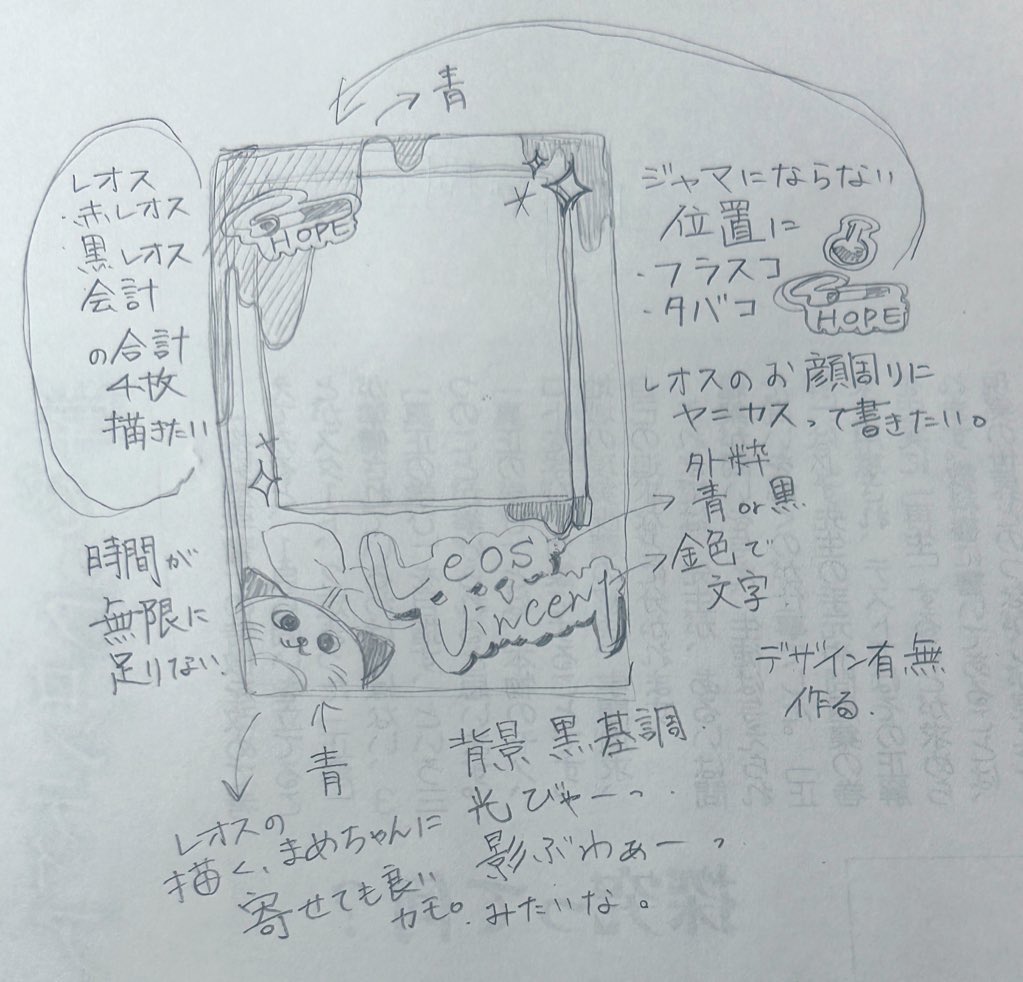 青
レオス
・赤レオス
・黒レオス
会計
の合計
4枚
描きたい
時間が
無限に
足りない
HOPE
Leos
Vincent
ジャマにならない
位置に
・フラスコ
・タバコ
HOPE
レオスのお顔周りに
ヤニカスって書きたい。
外粋
青or黒
金色で
文字
デザイン有無
作る.
青
レオスの
描く、まめちゃんに
寄せても良い
カモ。
背景 黒基調.
光びゃーっ.
影ぶわぁーっ
みたいな。